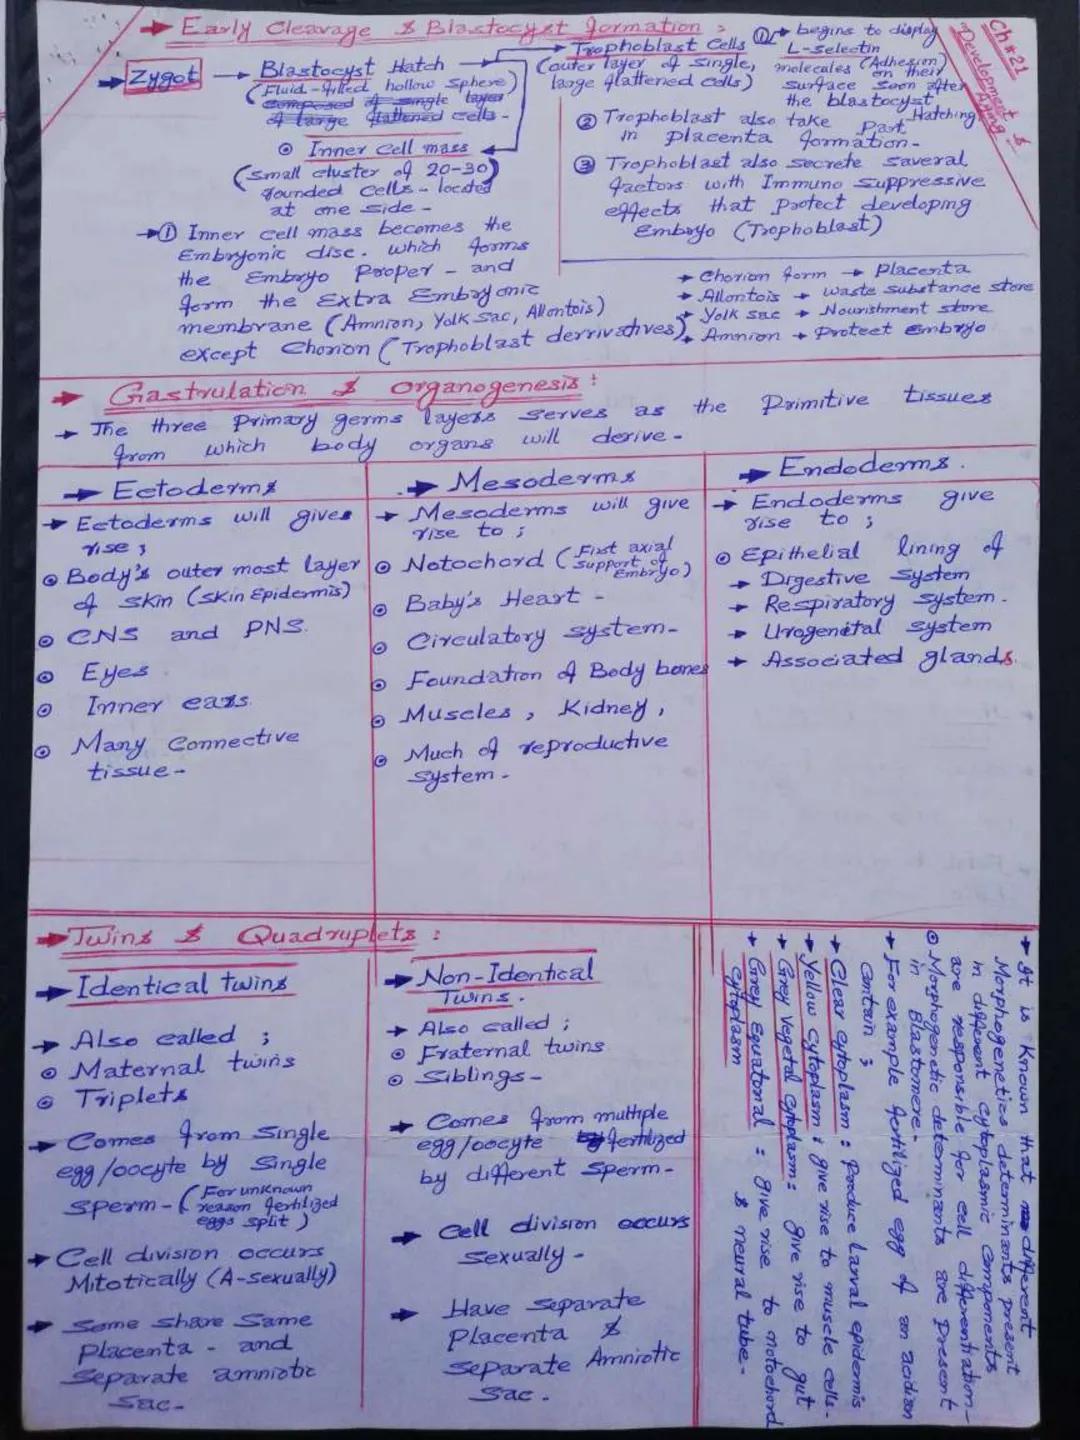 Ch # 21
Development &
Aging
→ Early Cleavage & Blastocyst formation :
→ Zygot → Blastocyst Hatch →
(Fluid-filled hollow sphere)
composed of single layer
of large flattened cells -
→ Trophoblast Cells
(outer layer of single,
large flattened cells)
① → begins to display
L-selectin
molecules (Adhesion)
on their
surface soon after
the blastocyst
Hatching
② Trophoblast also take Part
in placenta formation -
③ Trophoblast also secrete saveral
factors with Immuno suppressive
effects that protect developing
Embryo (Trophoblast)
⊙ Inner cell mass
(small cluster of 20-30)
rounded cells - located
at one side -
→① Inner cell mass becomes the
Embryonic disc. which forms
the Embryo Proper - and
form the Extra Embryonic
membrane (Amnion, Yolk sac, Allontois)
except Chorion (Trophoblast derrivatives)
→ Chorion form → Placenta
→ Allontois → waste substance store
→ Yolk sac → Nourishment store
→ Amnion → Protect Embryo
→ Gastrulation & organogenesis :
→ The three Primary germs layers serves as the Primitive tissues
from which body organs will derive -
→ Ectoderms
→ Ectoderms will gives
rise ;
⊙ Body's outer most layer
of skin (skin Epidermis)
⊙ CNS and PNS.
⊙ Eyes
⊙ Inner ears
⊙ Many Connective
tissue -
→ Mesoderms
→ Mesoderms will give
rise to ;
⊙ Notochord (First axial
support of
Embryo)
⊙ Baby's Heart -
⊙ Circulatory system -
⊙ Foundation of Body bones
⊙ Muscles, Kidney,
⊙ Much of reproductive
system -
→ Endoderms.
→ Endoderms give
rise to ;
⊙ Epithelial lining of
→ Digestive system
→ Respiratory system.
→ Urogenital system
→ Associated glands.
→ Twins & Quadruplets :
→ Identical twins
→ Also called ;
⊙ Maternal twins
⊙ Triplets
→ Comes from single
egg/oocyte by single
sperm - (For unknown
reason fertilized
eggs split)
→ Cell division occurs
Mitotically (A-sexually)
→ Some share Same
Placenta - and
separate amniotic
Sac -
→ Non-Identical
Twins.
→ Also called ;
⊙ Fraternal twins
⊙ Siblings -
→ Comes from multiple
egg/oocyte by fertilized
by different sperm -
→ Cell division occurs
sexually -
→ Have separate
Placenta &
separate Amniotic
Sac.
→ It is Known that different
Morphogenetics determinants present
in different cytoplasmic components
are responsible for cell differentiation -
⊙ Morphogenetic determinants are Present
in Blastomere -
→ For example fertilized egg of an acidian
Contain ;
→ Clear cytoplasm : Produce Larval epidermis
→ Yellow cytoplasm : give rise to muscle cells -
→ Grey Vegetal cytoplasm : give rise to gut
→ Grey Equatorial : give rise to notochord
cytoplasm & neural tube -